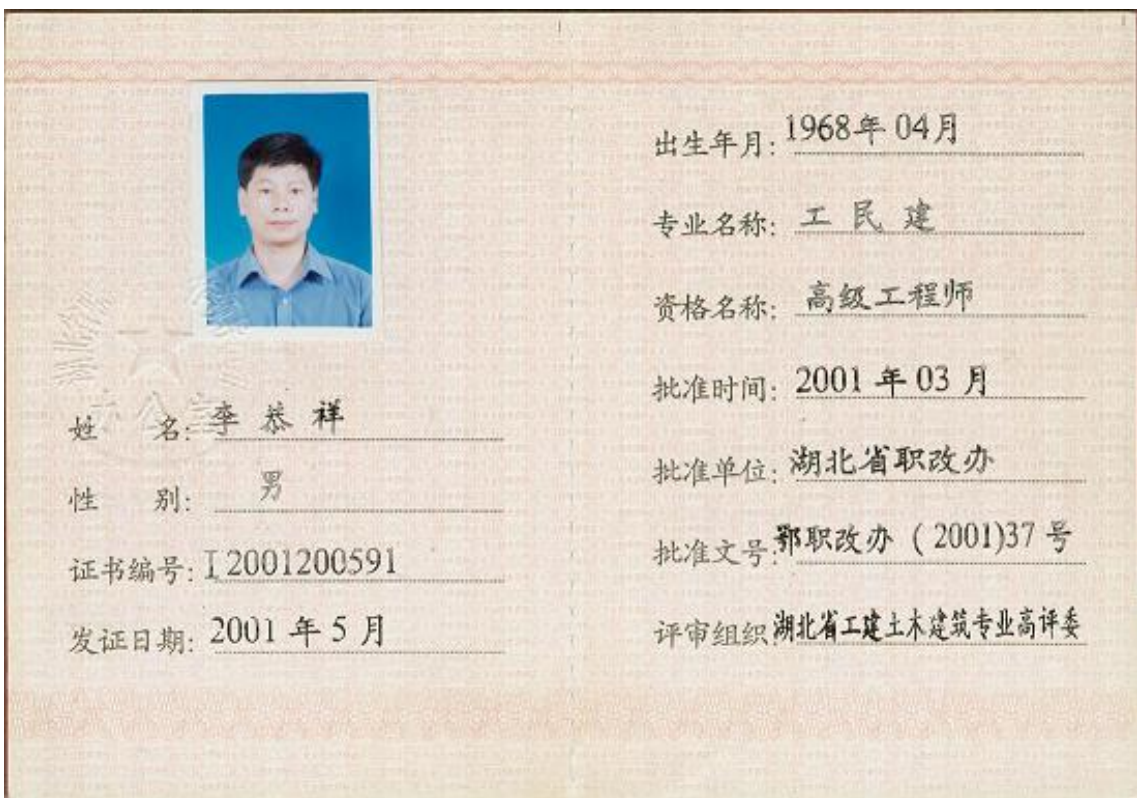 姓 名: 李恭祥
性 别: 男
证书编号: I2001200591
发证日期: 2001 年 5 月
出生年月: 1968年 04月
专业名称: 工民建
资格名称: 高级工程师
批准时间: 2001 年 03 月
批准单位: 湖北省职改办
批准文号: 鄂职改办 ( 2001)37 号
评审组织: 湖北省工建土木建筑专业高评委
办公室